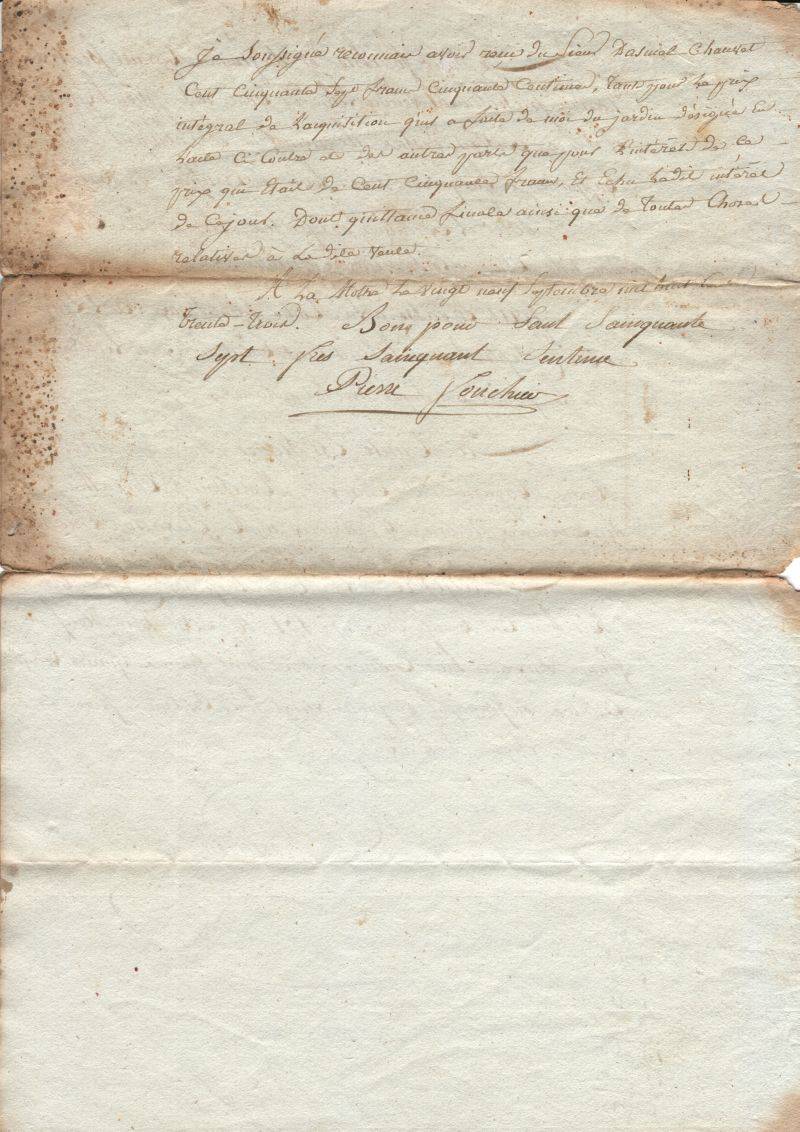 Je Soussigné reconnais avoir reçu du Sieur Daniel Chauvet
Cent Cinquante Sept franc Cinquante Centimes, tant pour Le prix
intégral de L'aquisition qu'il a faite de moi du jardin désigné en
L'acte Ci Contre et des autre parts que pour L'intérêt de ce
prix qui Etait de Cent Cinquante francs, et Echu Ledit intérêt
de Cejour. Dont quittance finale ainsi que de toutes Choses
relatives à La dite vente.
A La Motte Le vingt neuf Septembre mil huit Cent
trente-trois. Bon pour Sant Sainquante
Sept frcs Sainquant Sentime
Pierre